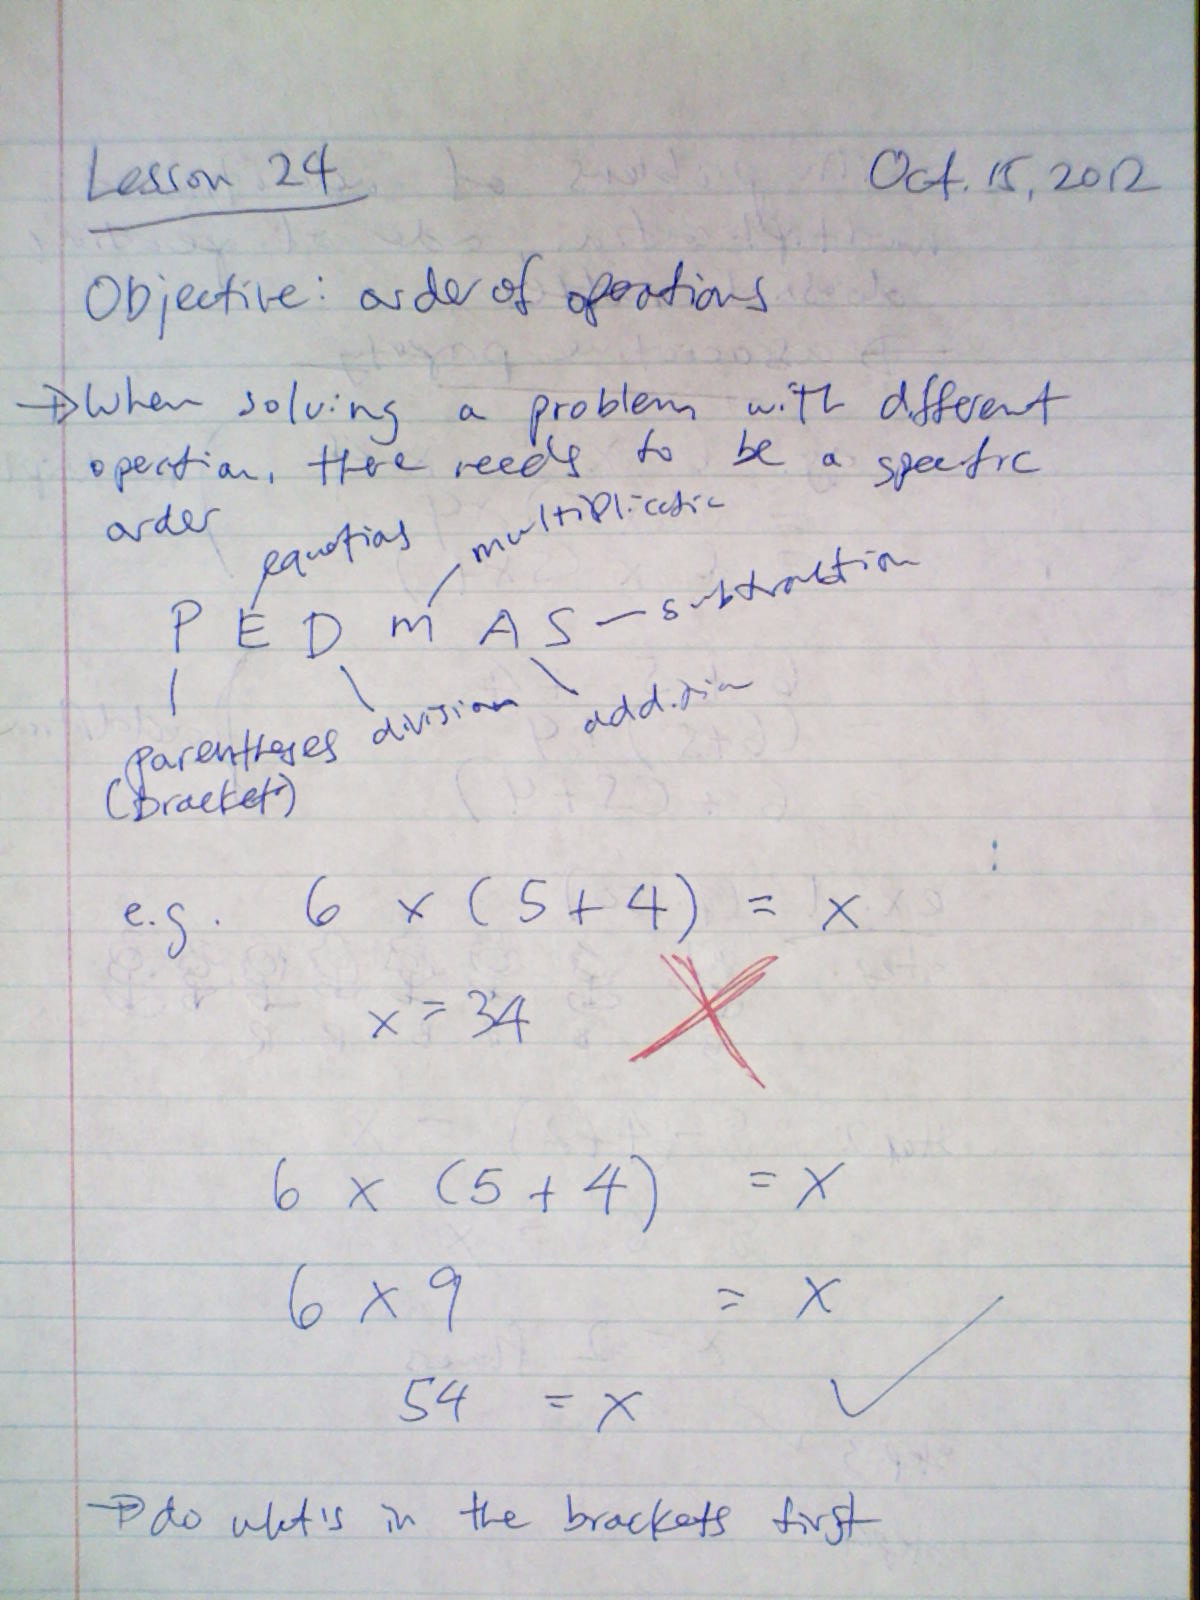 Lesson 24 Oct. 15, 2012
Objective: order of operations
→ When solving a problem with different
opertion, there needs to be a specific
order
equations multiplicatic
P E D M A S — subtraction
parentheses division addition
(Bracket)
e.g. 6 x (5 + 4) = x
x = 34
6 x (5 + 4) = x
6 x 9 = x
54 = x
→ do what's in the brackets first